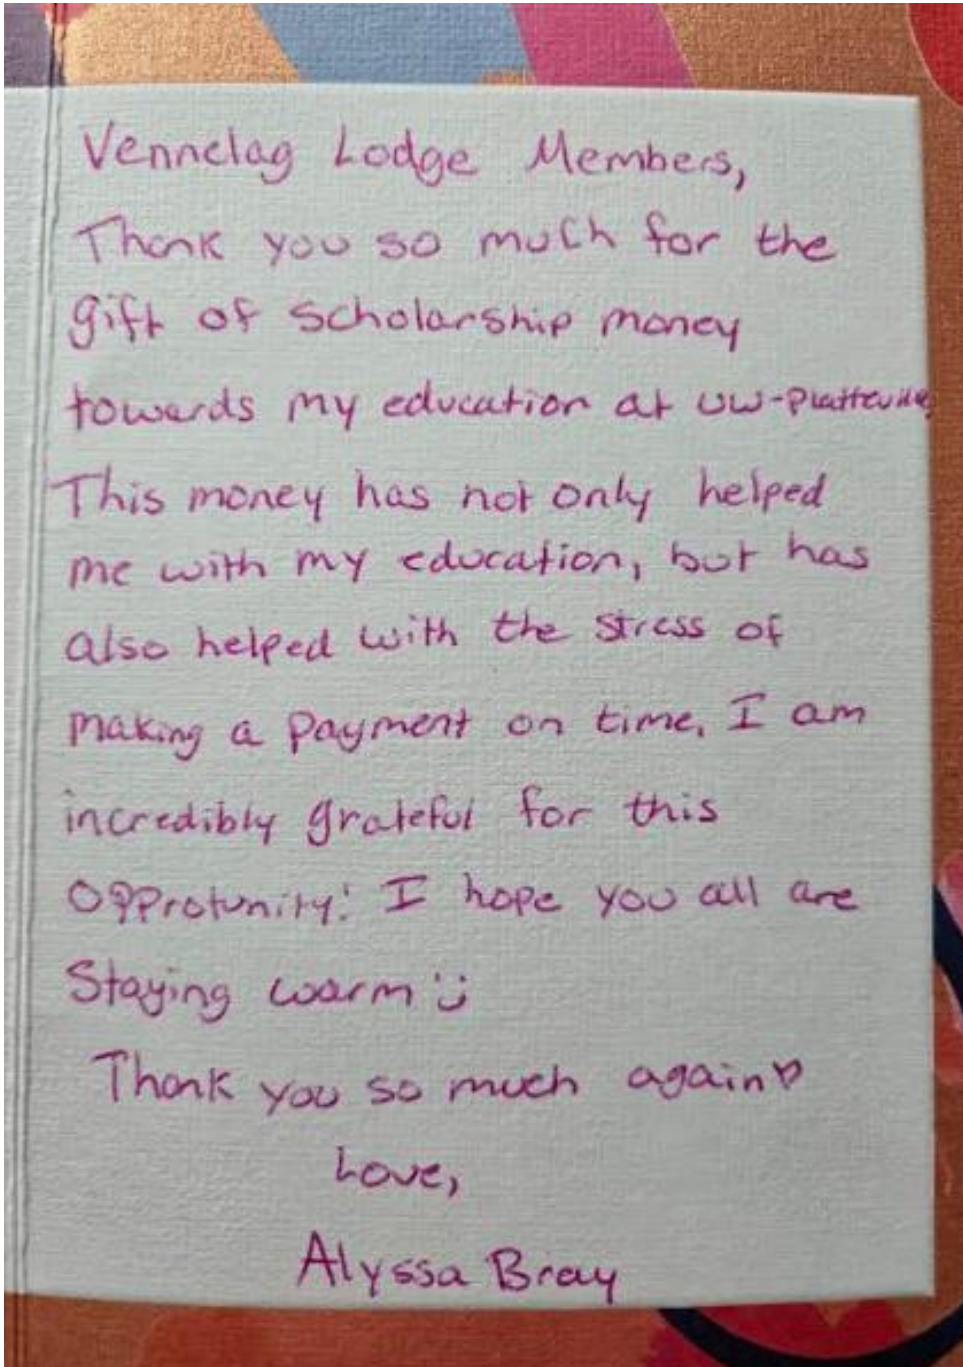 Vennelag Lodge Members,
Thank you so much for the
gift of scholarship money
towards my education at UW-Platteville.
This money has not only helped
me with my education, but has
also helped with the stress of
making a payment on time. I am
incredibly grateful for this
Opprotunity! I hope you all are
Staying warm :)
Thank you so much again♡
Love,
Alyssa Bray